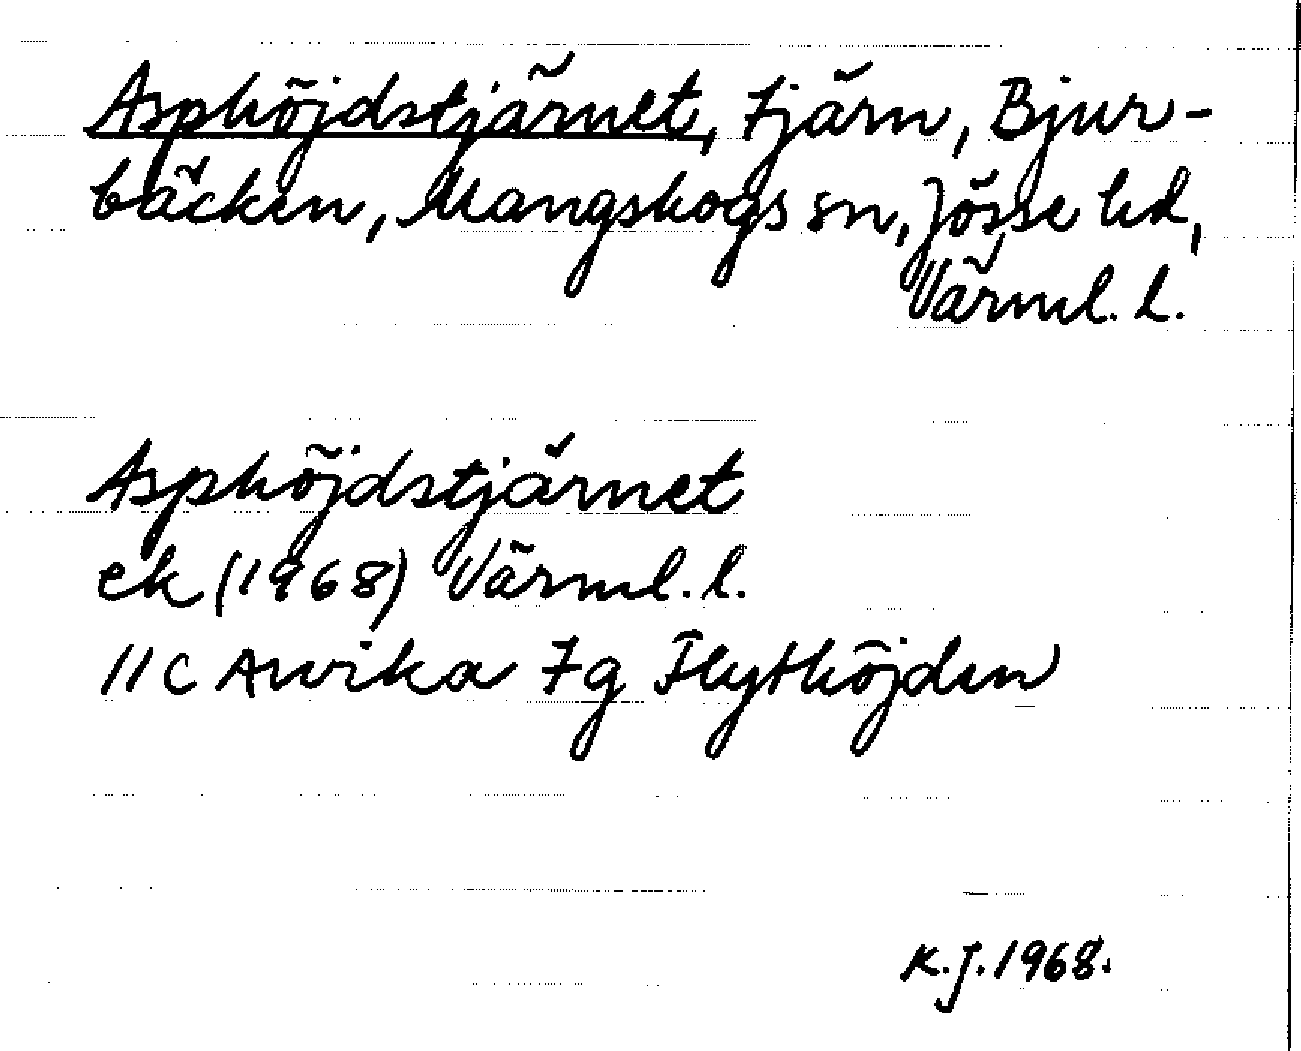 Asphöjdstjärnet, tjärn, Bjur-
bäcken, Mangskogs sn, Jösse hd,
Värml. l.
Asphöjdstjärnet
ek (1968) Värml. l.
11C Arvika 7g Flythöjden
K.J. 1968.